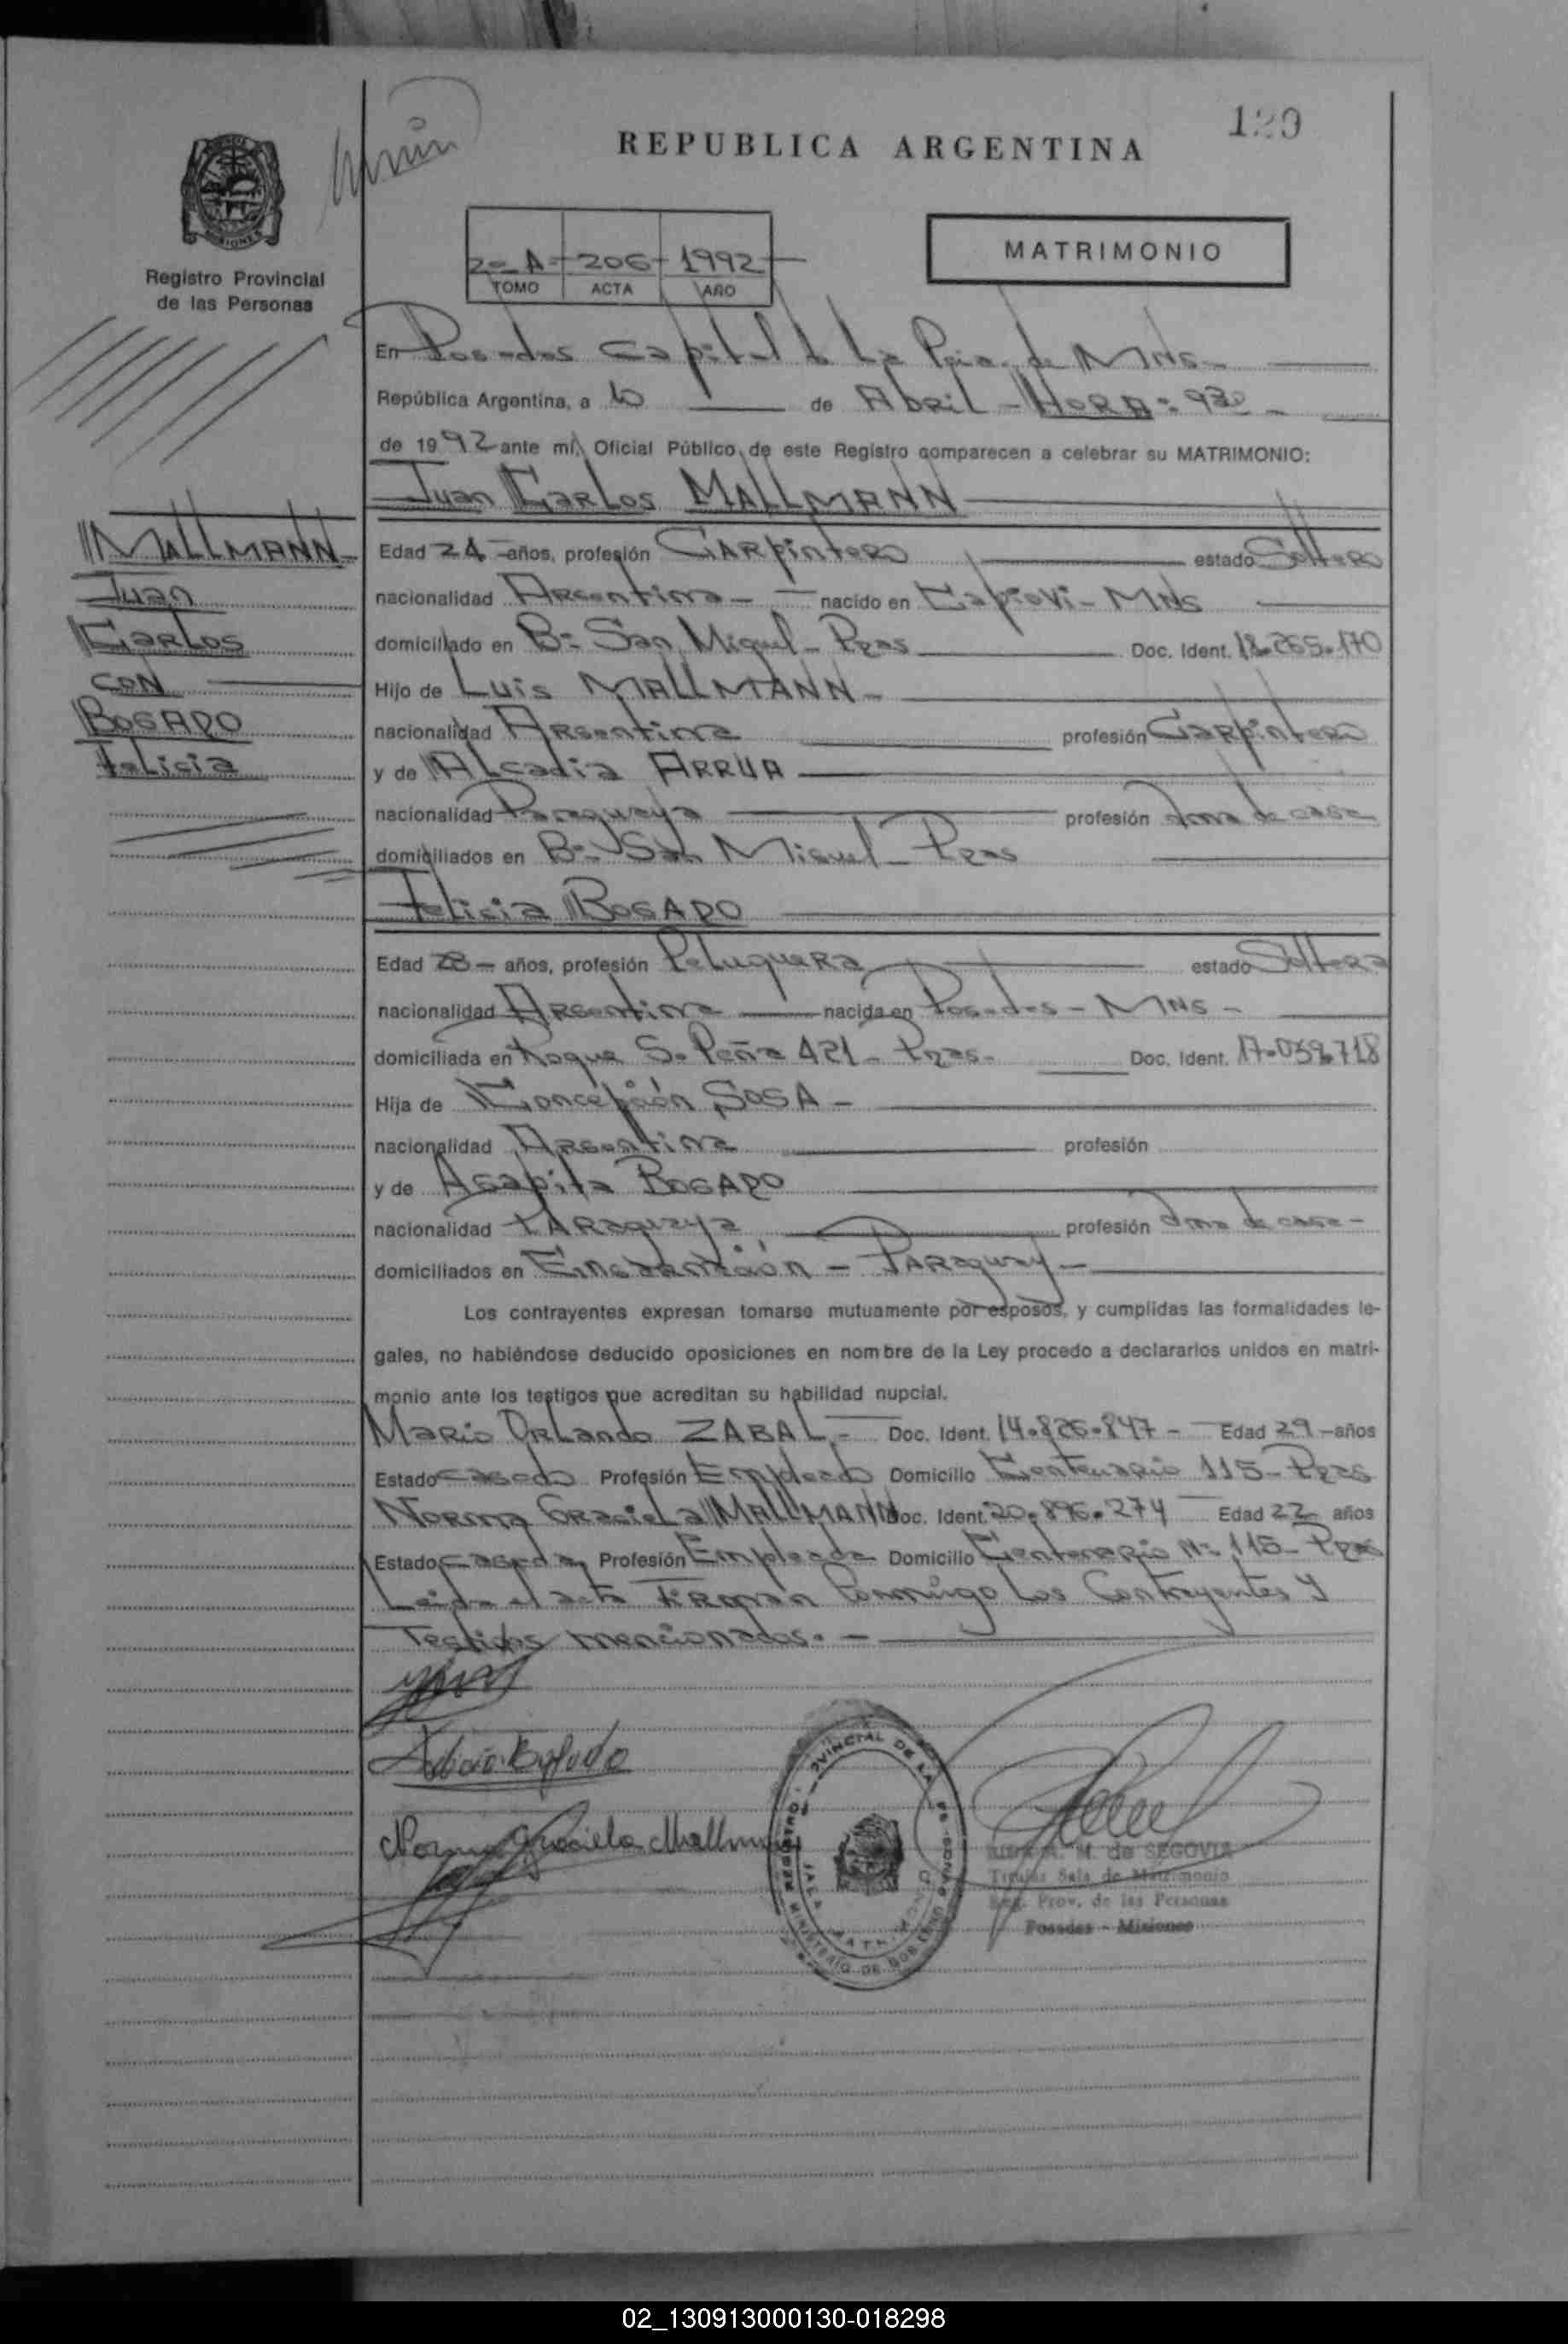 129
REPUBLICA ARGENTINA
MISIONES
Registro Provincial
de las Personas
2º A - 206 - 1992
TOMO ACTA AÑO
MATRIMONIO
En Posadas Capital de la Pcia. de MNS-
República Argentina, a 10 de Abril - HORA: 930 -
de 1992 ante mí, Oficial Público de este Registro comparecen a celebrar su MATRIMONIO:
Juan Carlos MALLMANN
MALLMANN
Juan
Carlos
CON
BOGADO
Felicia
Edad 24 - años, profesión Carpintero estado Soltero
nacionalidad Argentina - nacido en Capiovi - MNS
domiciliado en Bº San Miguel - Pzas Doc. Ident. 18.265.170
Hijo de Luis MALLMANN -
nacionalidad Argentina profesión Carpintero
y de Alcadia ARRUA
nacionalidad Paraguaya profesión Ama de casa
domiciliados en Bº San Miguel - Pzas
Felicia BOGADO
Edad 28 - años, profesión Peluquera estado Soltera
nacionalidad Argentina nacida en Posadas - MNS -
domiciliada en Roque S. Peña 421 - Pzas. Doc. Ident. 17.039.718
Hija de Concepción SOSA -
nacionalidad Argentina profesión
y de Agapita BOGADO
nacionalidad PARaguaya profesión Ama de casa -
domiciliados en Encarnación - PARaguay -
Los contrayentes expresan tomarse mutuamente por esposos, y cumplidas las formalidades le-
gales, no habiéndose deducido oposiciones en nombre de la Ley procedo a declararlos unidos en matri-
monio ante los testigos que acreditan su habilidad nupcial.
Mario Orlando ZABAL - Doc. Ident. 14.826.847 - Edad 29 - años
Estado casado Profesión Empleado Domicilio Centenario 115 - Pzas
Norma Graciela MALLMANN Doc. Ident. 20.896.274 Edad 22 años
Estado casada Profesión Empleada Domicilio Centenario Nº 115 - Pzas
Leida el acta Firman Conmigo los Contrayentes y
Testigos mencionados. -
Felicia Bogado
Norma Graciela Mallmann
REGISTRO PROVINCIAL DE LAS PERSONAS
MINISTERIO DE GOBIERNO
A. M. de SEGOVIA
Titular Sala de Matrimonio
Reg. Prov. de las Personas
Posadas - Misiones
02_130913000130-018298